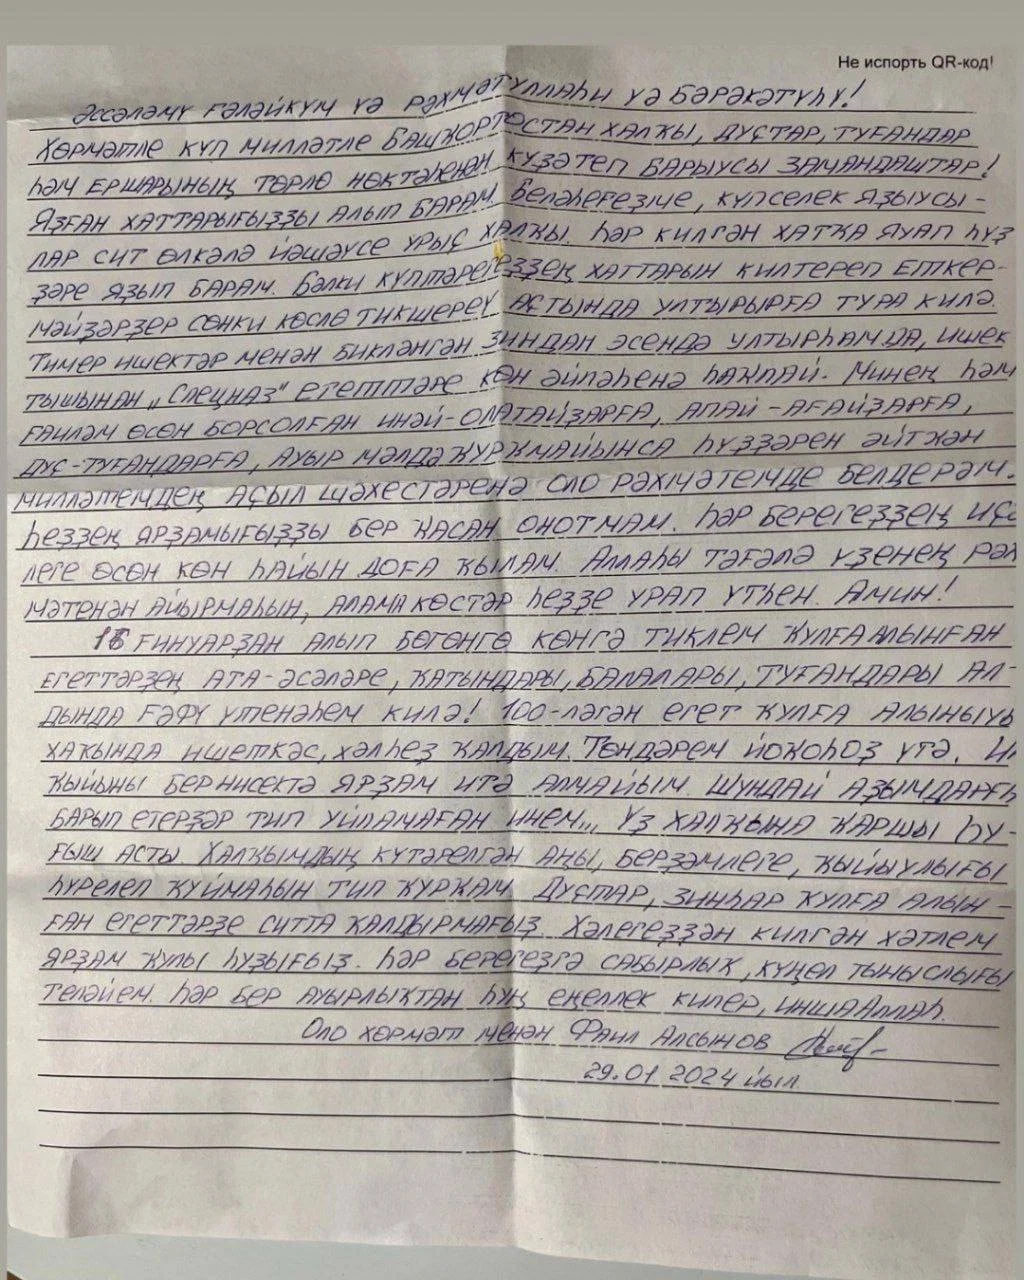 Не испорть QR-код!
Әссәләмү ғәләйкүм үә рәхмәтуллаһи үә бәрәкәтүһү!
Хөрмәтле күп милләтле Башҡортостан халҡы, дуҫтар, туғандар
һәм Ершарының төрлө нөктәһенән күҙәтеп барыусы замандаштар!
Яҙған хаттарығыҙҙы алып барам. Беләһегеҙме, күпселек яҙыусы-
лар сит өлкәлә йәшәүсе урыҫ халҡы. Һәр килгән хатҡа яуап һүҙ
ҙәре яҙып барам. Бәлки күптәрегеҙҙең хаттарын килтереп еткер-
мәйҙәрҙер сөнки көслө тикшереү аҫтында ултырырға тура килә.
Тимер ишектәр менән бикләнгән зиндан эсендә ултырһам да, ишек
тышынан „Спецназ" егеттәре көн әйләһенә һаҡлай. Минең һәм
ғаиләм өсөн борсолған инәй-олатайҙарға, апай-ағайҙарға,
дуҫ-туғандарға, ауыр мәлдә ҡурҡмайынса һүҙҙәрен әйткән
милләтемдең аҫыл шәхестәренә оло рәхмәтемде белдерәм.
Һеҙҙең ярҙамығыҙҙы бер ҡасан онотмам. Һәр берегеҙҙең иҫә
леге өсөн көн һайын доға ҡылам. Аллаһы тәғәлә үҙенең рәх
мәтенән айырмаһын, алама көстәр һеҙҙе урап үтһен. Амин!
15 ғинуарҙан алып бөгөнгө көнгә тиклем ҡулға алынған
егеттәрҙең ата-әсәләре, ҡатындары, балалары, туғандары ал-
дында ғәфү үтенәһем килә! 100-ләгән егет ҡулға алыныуы
хаҡында ишеткәс, хәлһеҙ ҡалдым. Төндәрем йоҡоһоҙ үтә. Иң
ҡыйыны бер нисектә ярҙам итә алмайым. Шундай аҙымдарға
барып етерҙәр тип уйламаған инем... Үҙ халҡына ҡаршы һу-
ғыш асты. Халҡымдың күтәрелгән аңы, берҙәмлеге, ҡыйыулығы
һүрелеп ҡуймаһын тип ҡурҡам. Дуҫтар, зинһар ҡулға алын-
ған егеттәрҙе ситтә ҡалдырмағыҙ. Хәлегеҙҙән килгән хәтлем
ярҙам ҡулы һуҙығыҙ. Һәр берегеҙгә сабырлыҡ, күңел тыныслығы
теләйем. Һәр бер ауырлыҡтан һуң еңеллек килер, иншаАллаһ.
Оло хөрмәт менән Фаил Алсынов
29.01.2024 йыл